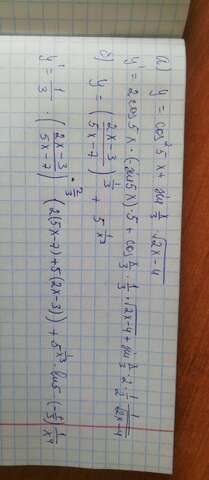 а) y = cos² 5x + sin x/3 · √2x-4
y' = 2 cos 5x · (sin 5x) · 5 + cos x/3 · 1/3 · √2x-4 + sin x/3 · 2 · 1/2 · 1/√2x-4
б) y = (2x-3 / 5x-7)^(1/3) + 5^(1/x³)
y' = 1/3 · (2x-3 / 5x-7)^(-2/3) · (2(5x-7) + 5(2x-3)) + 5^(1/x³) · ln5 · (-1/3) 1/x⁴